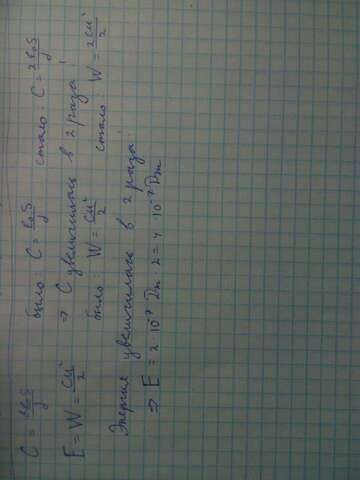 C = εε₀S/d было: C = ε₀S/d стало: C = 2ε₀S/d
⇒ C увеличилась в 2 раза
E = W = CU²/2 было: W = CU²/2 стало: W = 2CU²/2
Энергия увеличилась в 2 раза
⇒ E = 2 · 10⁻⁷ Дж · 2 = 4 · 10⁻⁷ Дж